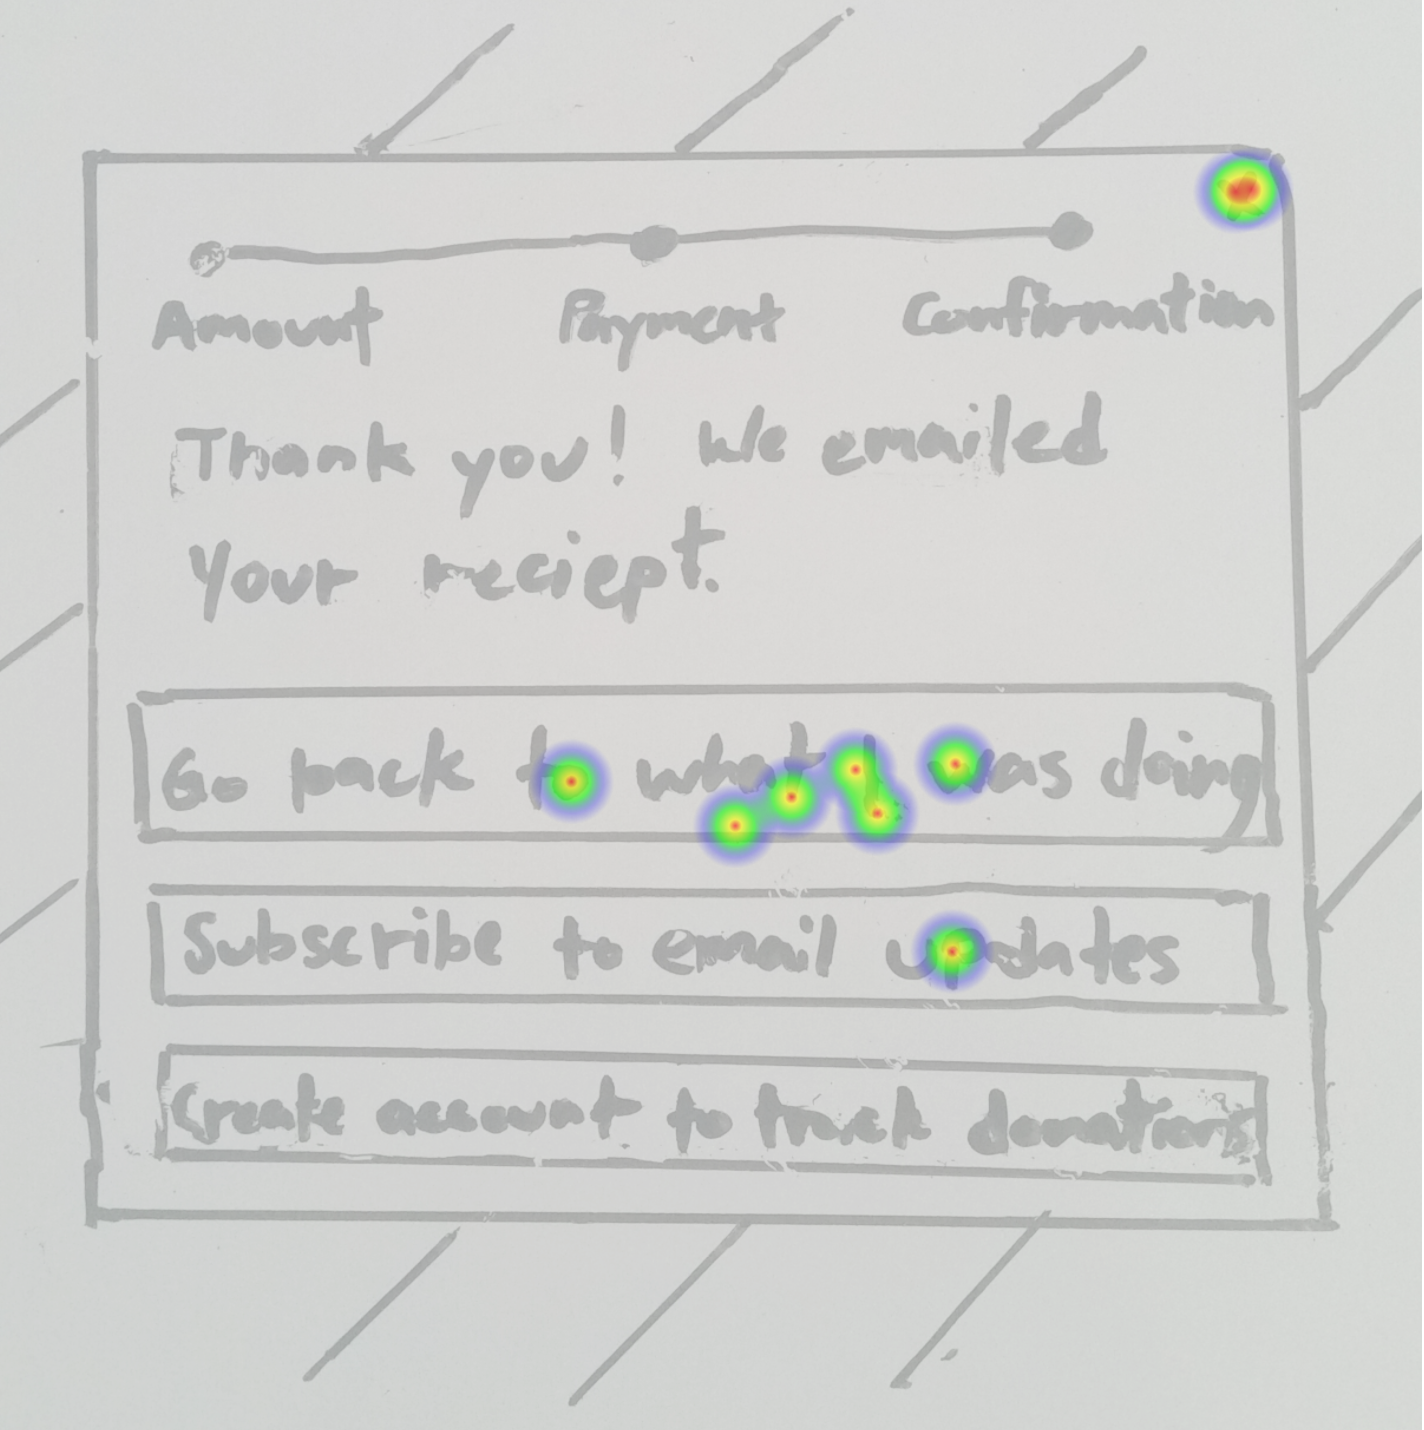 Amount Payment Confirmation
Thank you! We emailed
your reciept.
Go back to what I was doing
Subscribe to email updates
Create account to track donations